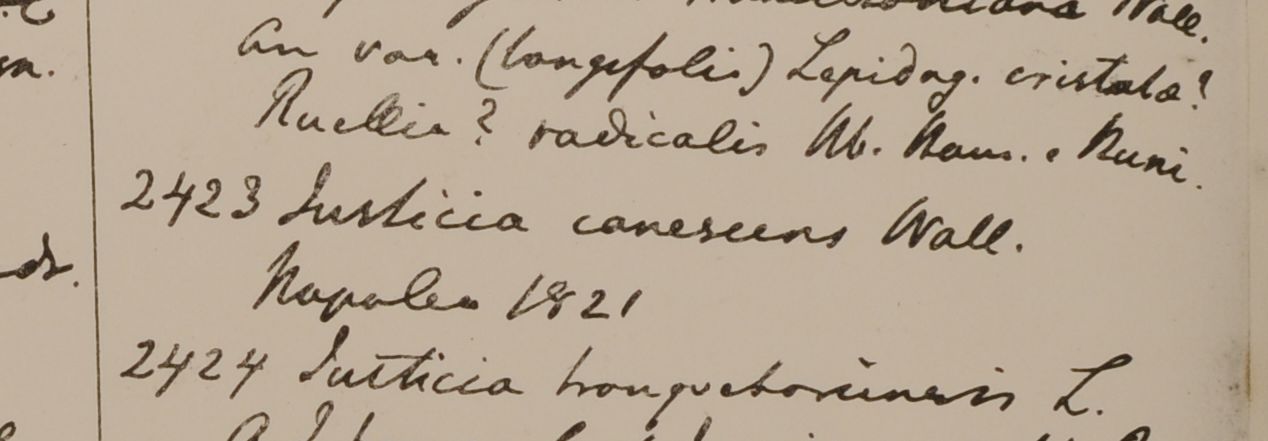 Wall.
An var. (longifolis) Lepidag. cristata?
Ruellia? radicalis Hb. Ham. e Runi.
2423 Justicia canescens Wall.
Napalea 1821
2424 Justicia tranquebariensis L.